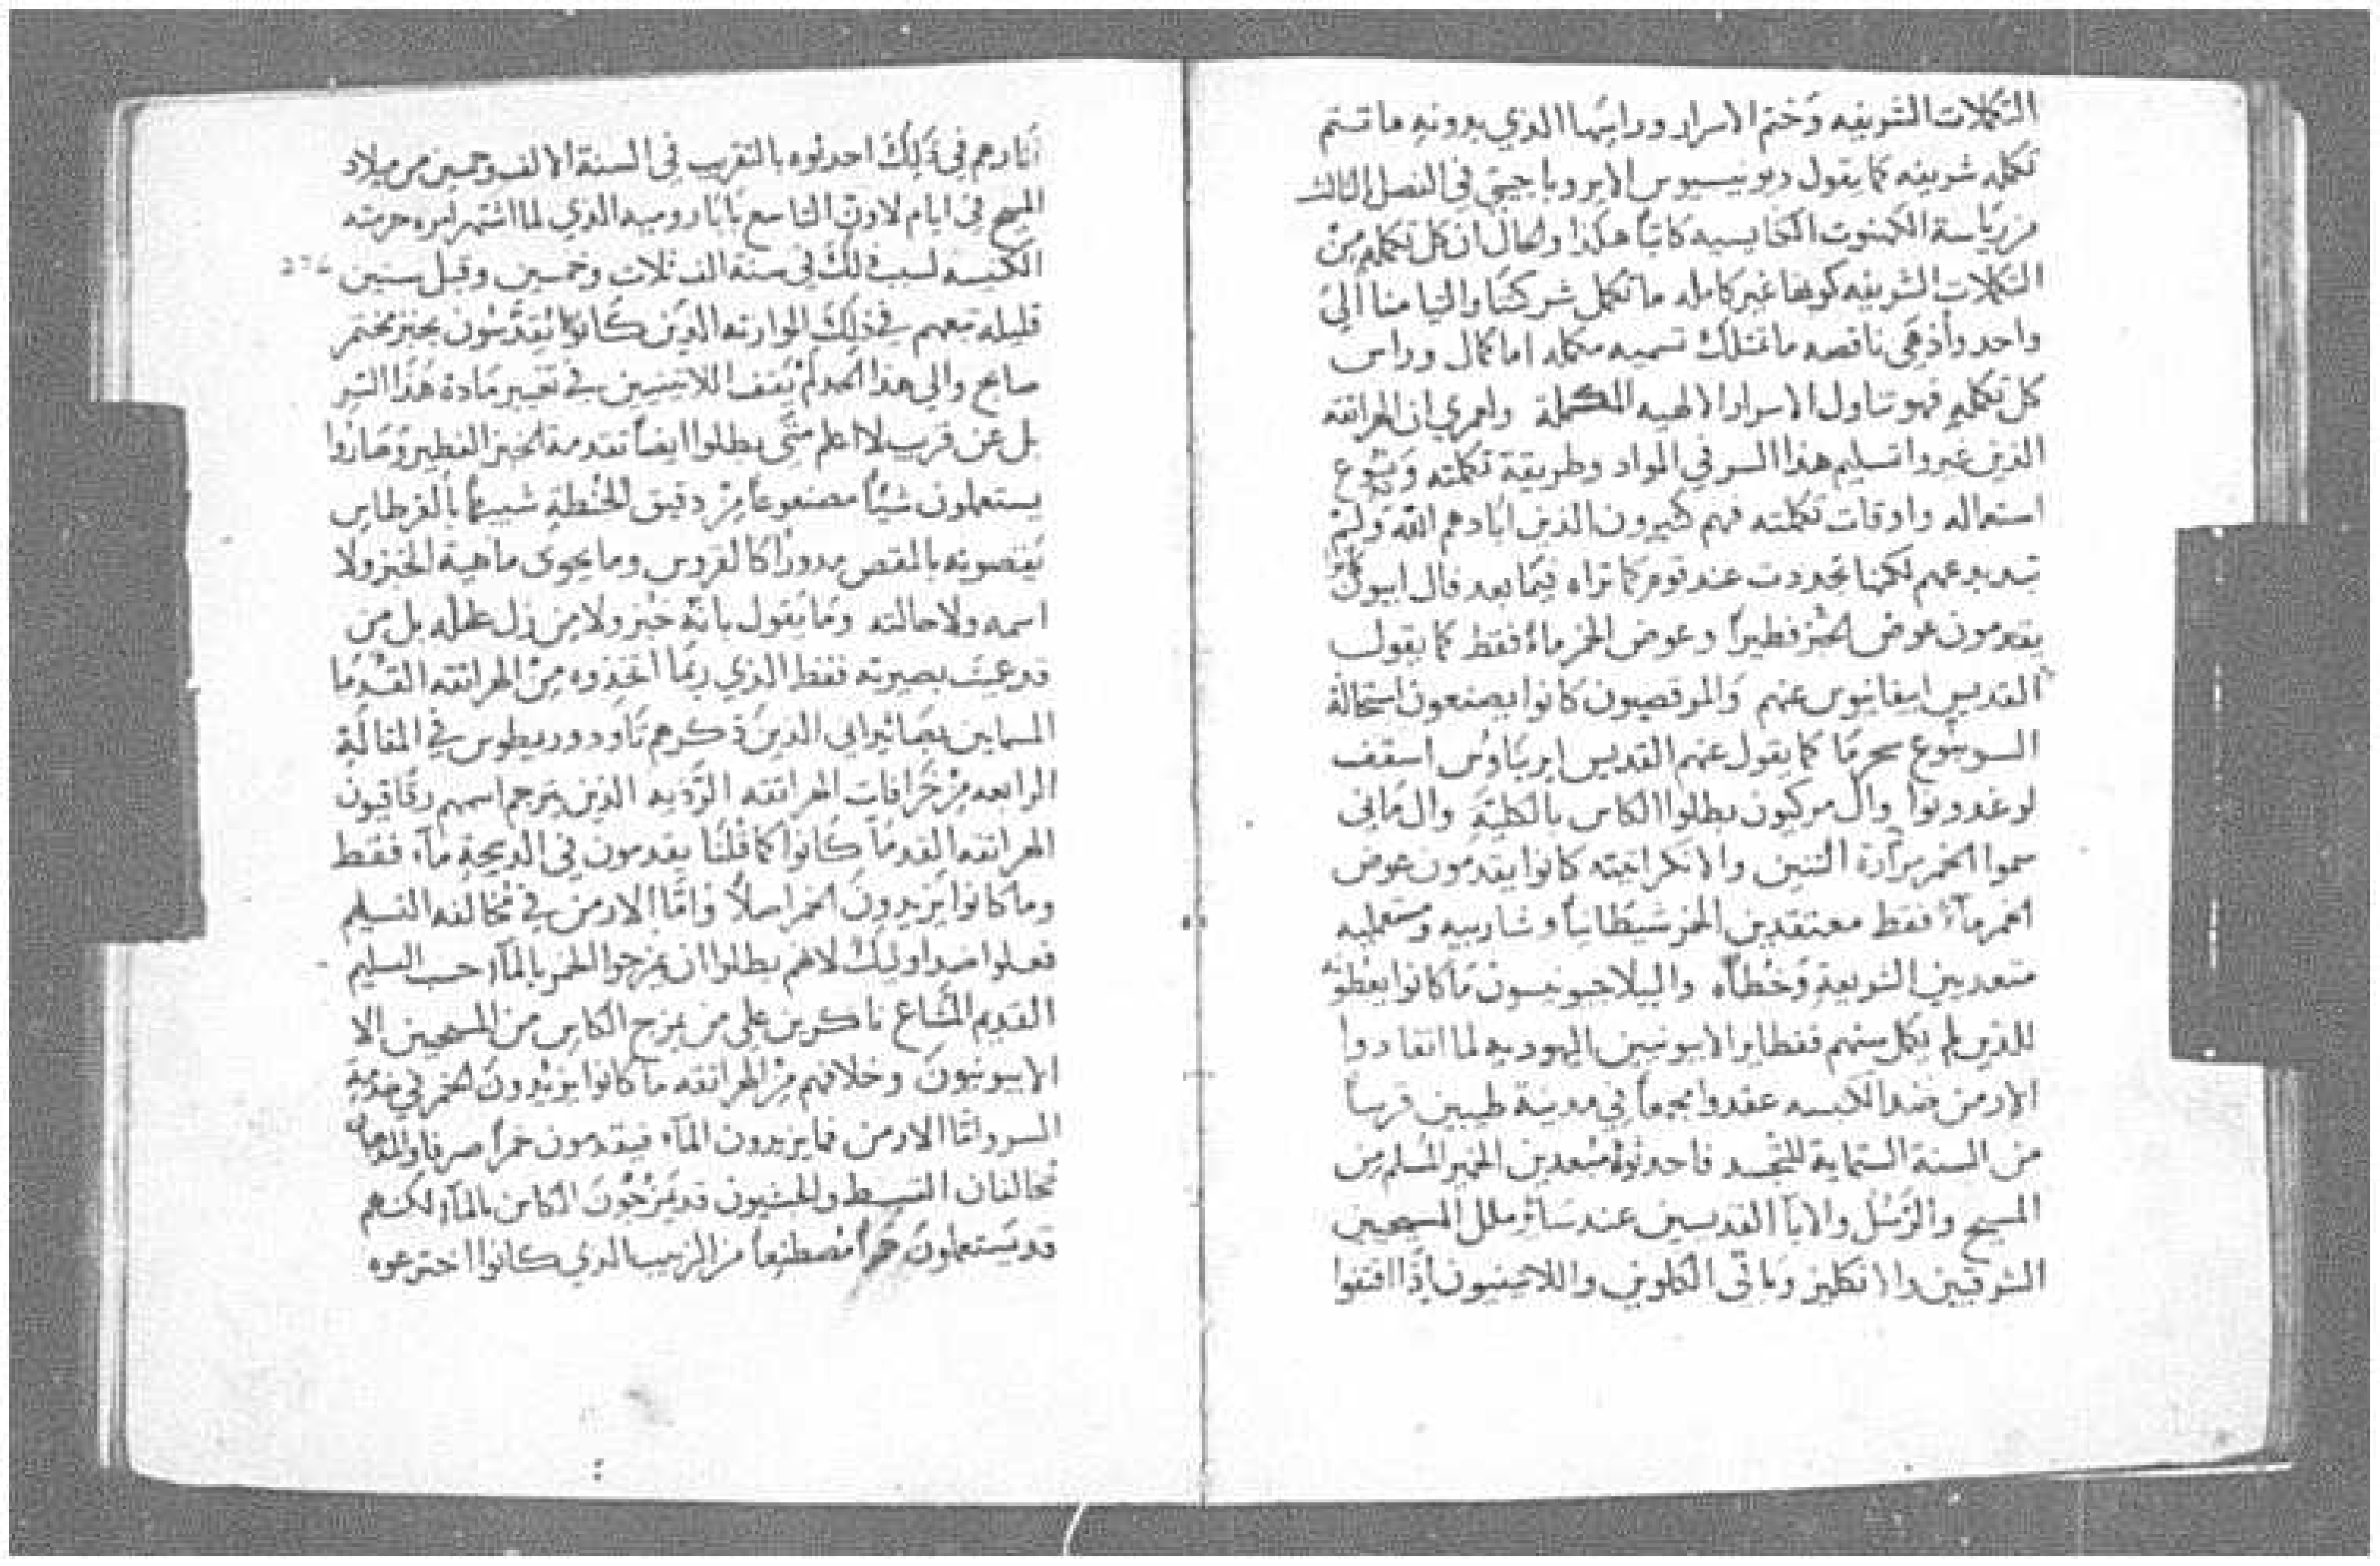 التكملات الشريفه وَختم الاسرار وراسها الذي بدونه ما تستتم
تكمله شريفه كما يقول ديونيسيوس الايروباجيتي في الفصل الثالث
من رياسة الكهنوت الكنايسيه كاتباً هكذا والحال ان كل تكمله من
التكملات الشريفه كونها غير كامله ما تكمل شركتنا والتيامنا الي
واحد وأذ هي ناقصه ما تمتلك تسميه مكمله اما كمال وراس
كل تكمله فهو تناول الاسرار الالهيه المكملة ولعمري ان الهراتقه
الذين غيروا تسليم هذا السر في المواد وطريقة تكملته وَينبوع
استعماله واوقات تكملته فهم كثيرون الذين ابادهم الله وَلم
تبد بدعهم لكنها تجددت عند قوم كما تراه فيما بعد فال ابيونيون
يقدمون عوض الخبز فطيراً وعوض الخمر ماءً فقط كما يقول
القديس ابيفانيوس عنهم وَالمرقصيون كانوا يصنعون استحالة
السر بنوع سحر ما كما يقول عنهم القديس ايريناوس اسقف
لوغدونوا وال مركيون بطلوا الكاس بالكلية وال ماني
سموا الخمر مرارة التنين والانكراتيته كانوا يقدمون عوض
الخمر ماءً فقط معتقدين الخمر شيطانياً وشاربيه ومستعمليه
متعديين الشريعة وَخطاه والبيلاجيونيسون ما كانوا يعطوه
للذين لم يكمل سنهم فقط اما الابونيين اليهوديه لما انقادوا
الارمن ضد الكنيسه عقدوا مجمعاً في مدينة طيبين قريباً
من السنة الستماية للتجسد فاحدثوه مبعدين الخمير المسلم من
المسيح والرُسُل والابآ القديسين عند سائر ملل المسيحيين
الشرقيين والانكليز وباقي الكلوين واللاتينيون اذاً اقتفوا
اثارهم في ذلك احدثوه بالتقريب في السنة الالف وخمسين من ميلاد
المسيح في ايام لاون التاسع بابا روميه الذي لما اشتهر امره حرمته
الكنيسه لسبب ذلك في سنة الف ثلاث وخمسين وقبل سنين
قليله تبعهم في ذلك الموارنه الذين كانوا يقدّسون بخبز مختمر
صايح والي هذا الحد لم يقف اللاتينيين في تغيير مادة هذا السر
بل عن قريب لا اعلم متى بطلوا ايضاً تقدمة الخبز الفطير وَصاروا
يستعملون شيئاً مصنوعاً من دقيق الحنطة شبيهاً بالقرطاس
يقصونه بالمقص مدوراً كالقروس وما يحوى ماهية الخبز ولا
اسمه ولا حالته وَما يقول بانه خبز ولا من زل عقله بل من
قد عميت بصيرته فقط الذي ربما اتخذوه من الهراتقه القدما
المسمايين بصاثيرابي الذين ذكرهم تاودوريطوس في المقالة
الرابعه من خرافات الهراتقه الرّديه الذين يترجم اسمهم رقاقيون
الهراتقه القدمآ كانوا كما قلنا يقدمون في الذبيحة مآء فقط
وما كانوا يزيدون الخمر اصلاً وامّا الارمن في مخالفة التسليم
فعلوا ضد اوليك لانهم بطلوا ان يمزجوا الخمر بالمآء حسب التسليم
القديم المشاع ناكرين على من يمزج الكاس من المسيحيين الا
الابيونيون وخلافهم من الهراتقه ما كانوا يزيدون الخمر في خدمة
السر وامّا الارمن فما يزيدون المآء فيقدمون خمراً صرفا والمذهبان
تخالفان القبط والحبشيون قد يمزجون الكاس بالمآء لكنهم
قد يستعملون خمراً مصطنعاً من الزبيب الذي كانوا اخترعوه